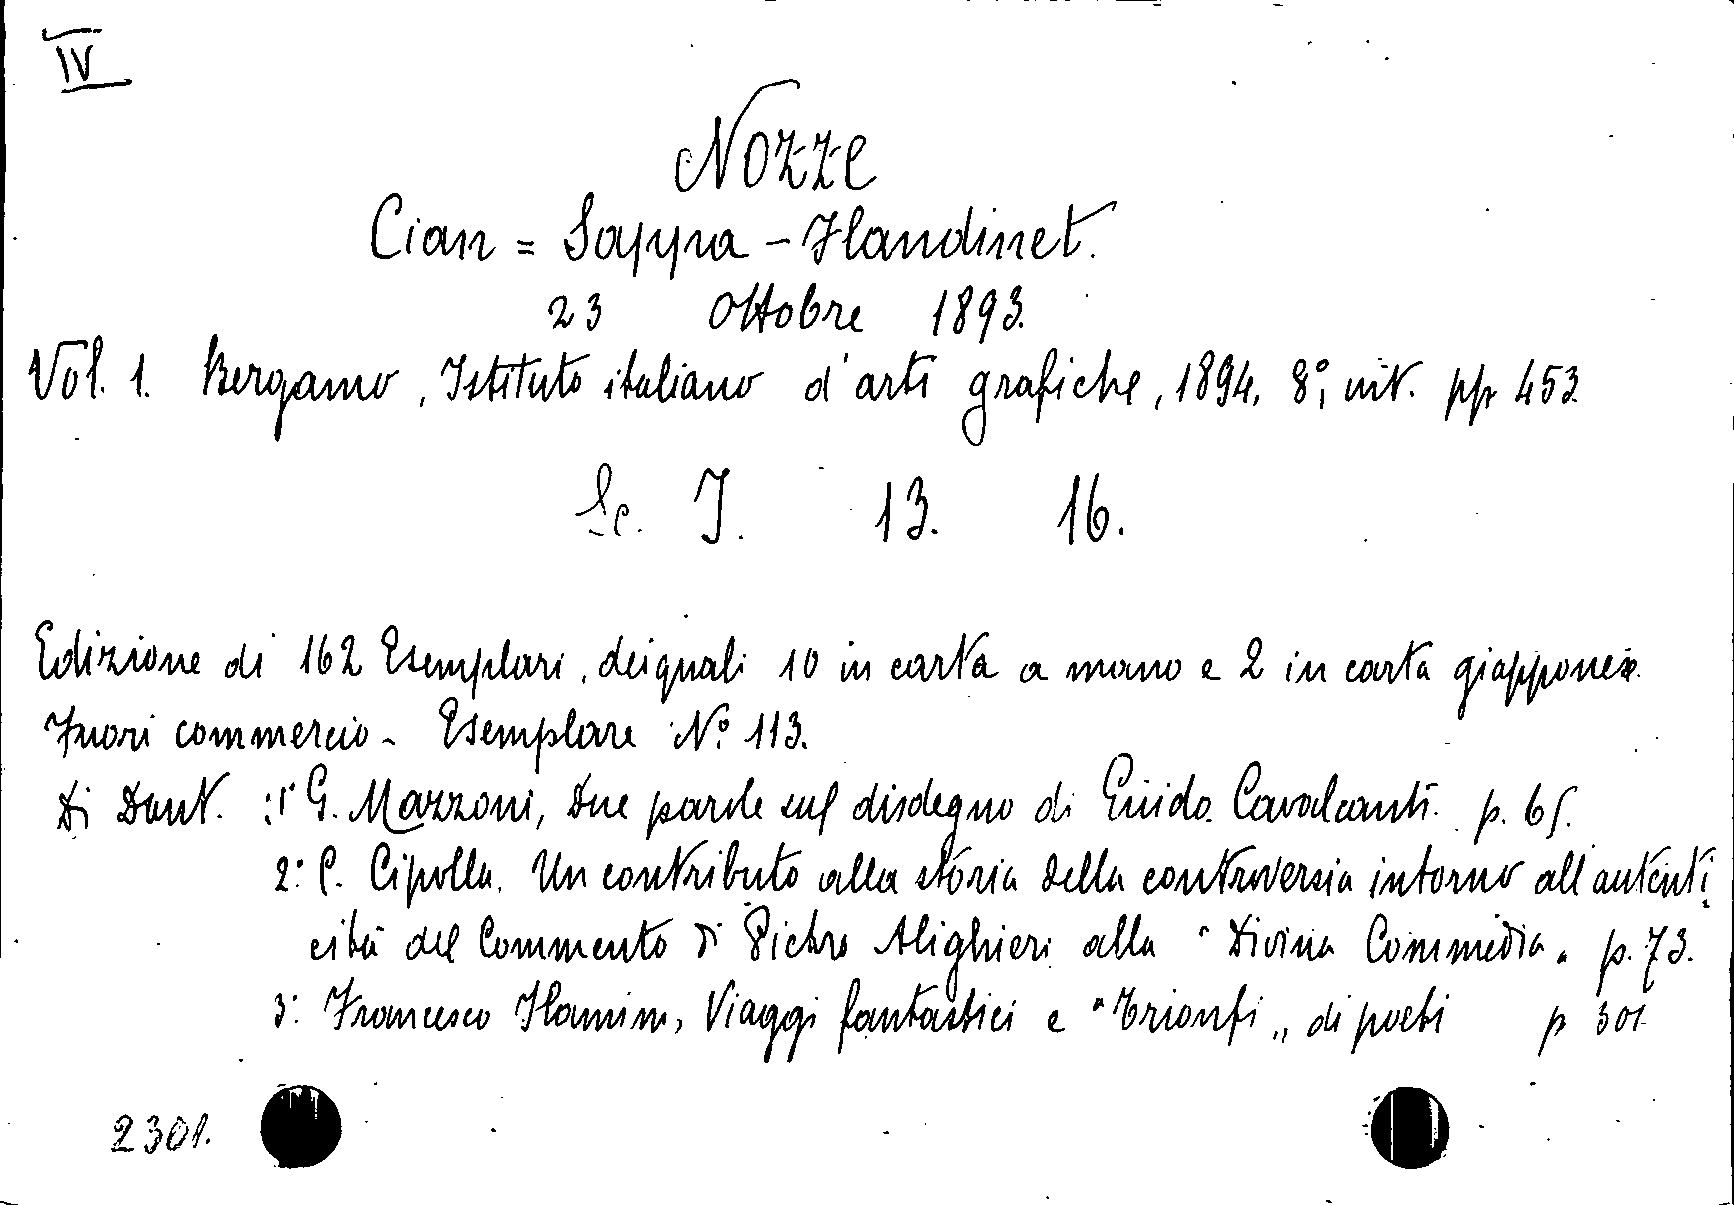 IV
Nozze
Cian = Sappa - Flandinet.
23 Ottobre 1893.
Vol. 1. Bergamo, Istituto italiano d'arti grafiche, 1894, 8°, rit. pp 453
Sc. I. 13. 16.
Edizione di 162 Esemplari, dei quali 10 in carta a mano e 2 in carta giapponese.
Fuori commercio - Esemplare N.° 113.
Di Dant. : 1° G. Mazzoni, Due parole sul disdegno di Guido Cavalcanti. p. 65.
2° C. Cipolla. Un contributo alla storia della controversia intorno all'autenti
cità del Commento di Pietro Alighieri alla "Divina Commedia" p. 73.
3° Francesco Flamini, Viaggi fantastici e "Trionfi" di poeti p 301
2301.